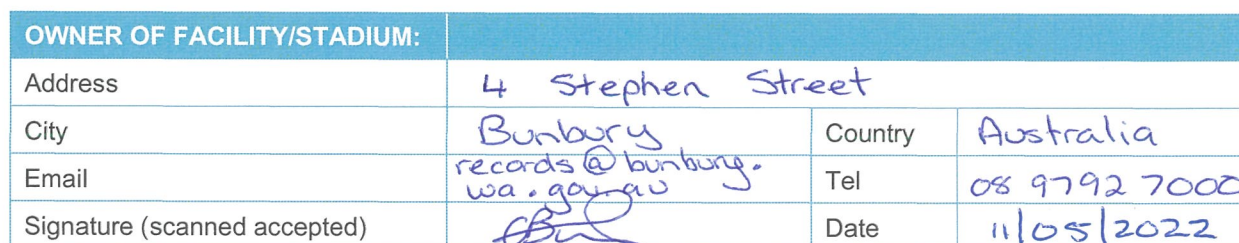 OWNER OF FACILITY/STADIUM:
Address 4 Stephen Street
City Bunbury Country Australia
Email records@bunbury.
wa.gov.au Tel 08 9792 7000
Signature (scanned accepted) Date 11/05/2022